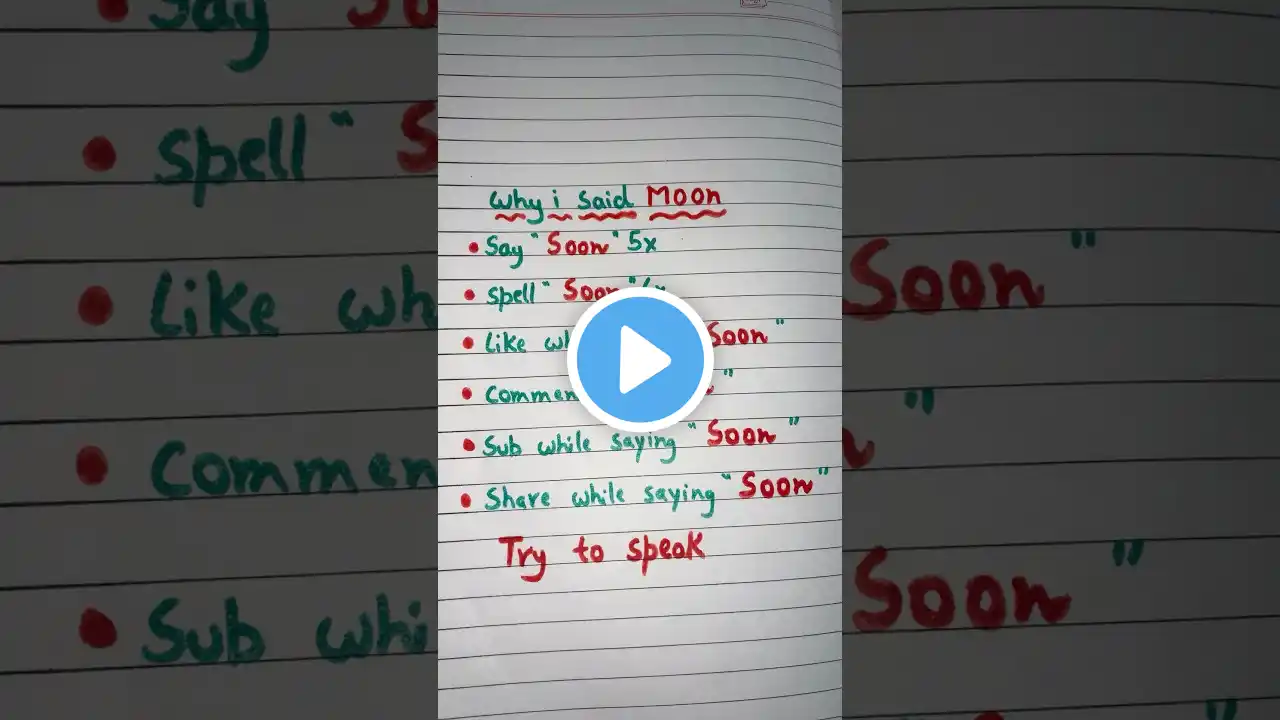 Why i said Moon
• Say "Soon" 5x
• Spell "Soon"
• Like "Soon"
• "
• Sub while saying "Soon"
• Share while saying "Soon"
Try to speak